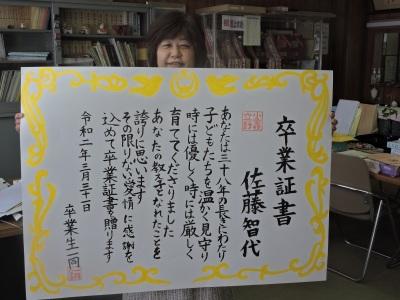 卒業証書
佐藤智代
あなたは三十八年の長きにわたり
子どもたちを温かく見守り
時には優しく時には厳しく
育ててくださりました
あなたの教え子となれたことを
誇りに思います
その限りない愛情に感謝を
込めて卒業証書を贈ります
令和二年三月三十一日
卒業生一同